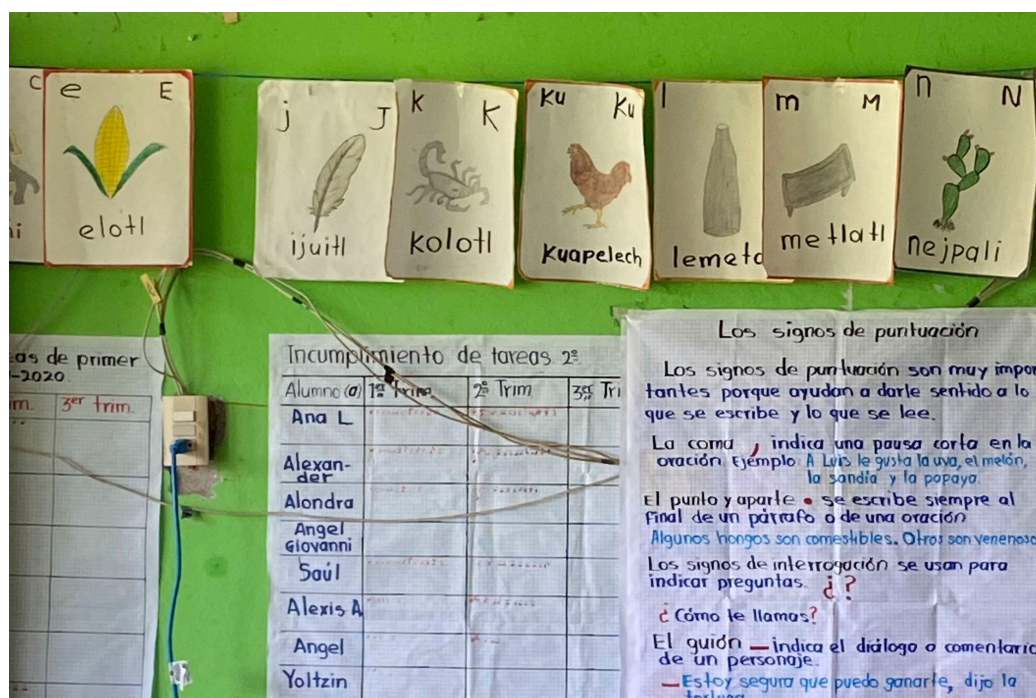 C
i
e E
elotl
j J
ijuitl
K K
Kolotl
Ku Ku
Kuapelech
l
lemeta
m M
metlatl
n N
nejpali
eas de primer
-2020
m. 3er trim.
Incumplimiento de tareas 2º
Alumno (a) 1er Trim 2º Trim 3er Tri
Ana L
Alexan-
der
Alondra
Angel
Giovanni
Saúl
Alexis A
Angel
Yoltzin
Los signos de puntuación
Los signos de puntuación son muy impor
tantes porque ayudan a darle sentido a lo
que se escribe y lo que se lee.
La coma , indica una pausa corta en la
oración. Ejemplo: A Luis le gusta la uva, el melón,
la sandía y la papaya.
El punto y aparte • se escribe siempre al
final de un párrafo o de una oración
Algunos hongos son comestibles. Otros son venenoso
Los signos de interrogación se usan para
indicar preguntas. ¿?
¿Cómo te llamas?
El guión — indica el diálogo o comentario
de un personaje.
— Estoy segura que puedo ganarte, dijo la
tortuga